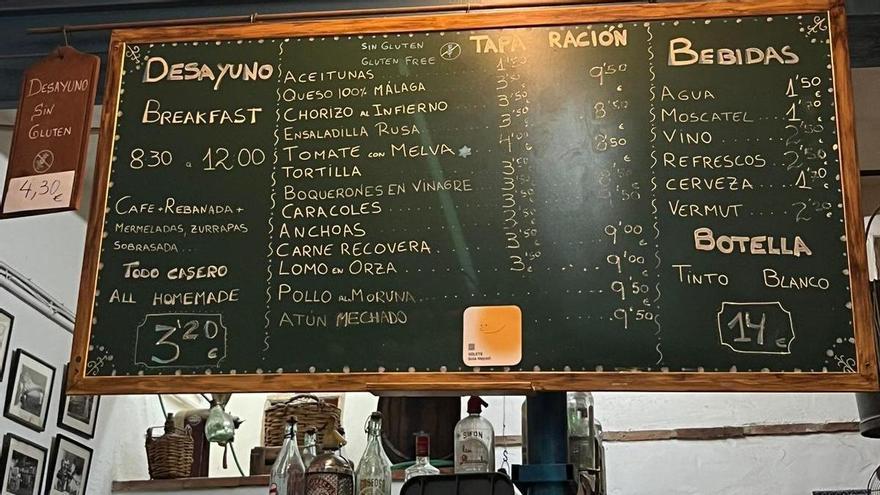 DESAYUNO
SIN
GLUTEN
4,30€
DESAYUNO
BREAKFAST
8:30 a 12:00
CAFE + REBANADA +
MERMELADAS, ZURRAPAS
SOBRASADA...
TODO CASERO
ALL HOMEMADE
3'20€
SIN GLUTEN
GLUTEN FREE
TAPA RACIÓN
ACEITUNAS 1'50
QUESO 100% MÁLAGA 3'50 9'50
CHORIZO AL INFIERNO 3'50
ENSALADILLA RUSA 3'50 8'50
TOMATE CON MELVA 4'00 8'50
TORTILLA 3'50
BOQUERONES EN VINAGRE
CARACOLES
ANCHOAS
CARNE RECOVERA 3'50 9'00
LOMO EN ORZA 3'50 9'00
POLLO AL MORUNA 9'50
ATÚN MECHADO 9'50
SOLETE
Guía Repsol
BEBIDAS
AGUA 1'50
MOSCATEL 1'70
VINO 2'50
REFRESCOS 2'50
CERVEZA 1'70
VERMUT 2'20
BOTELLA
TINTO BLANCO
14€
SIFON